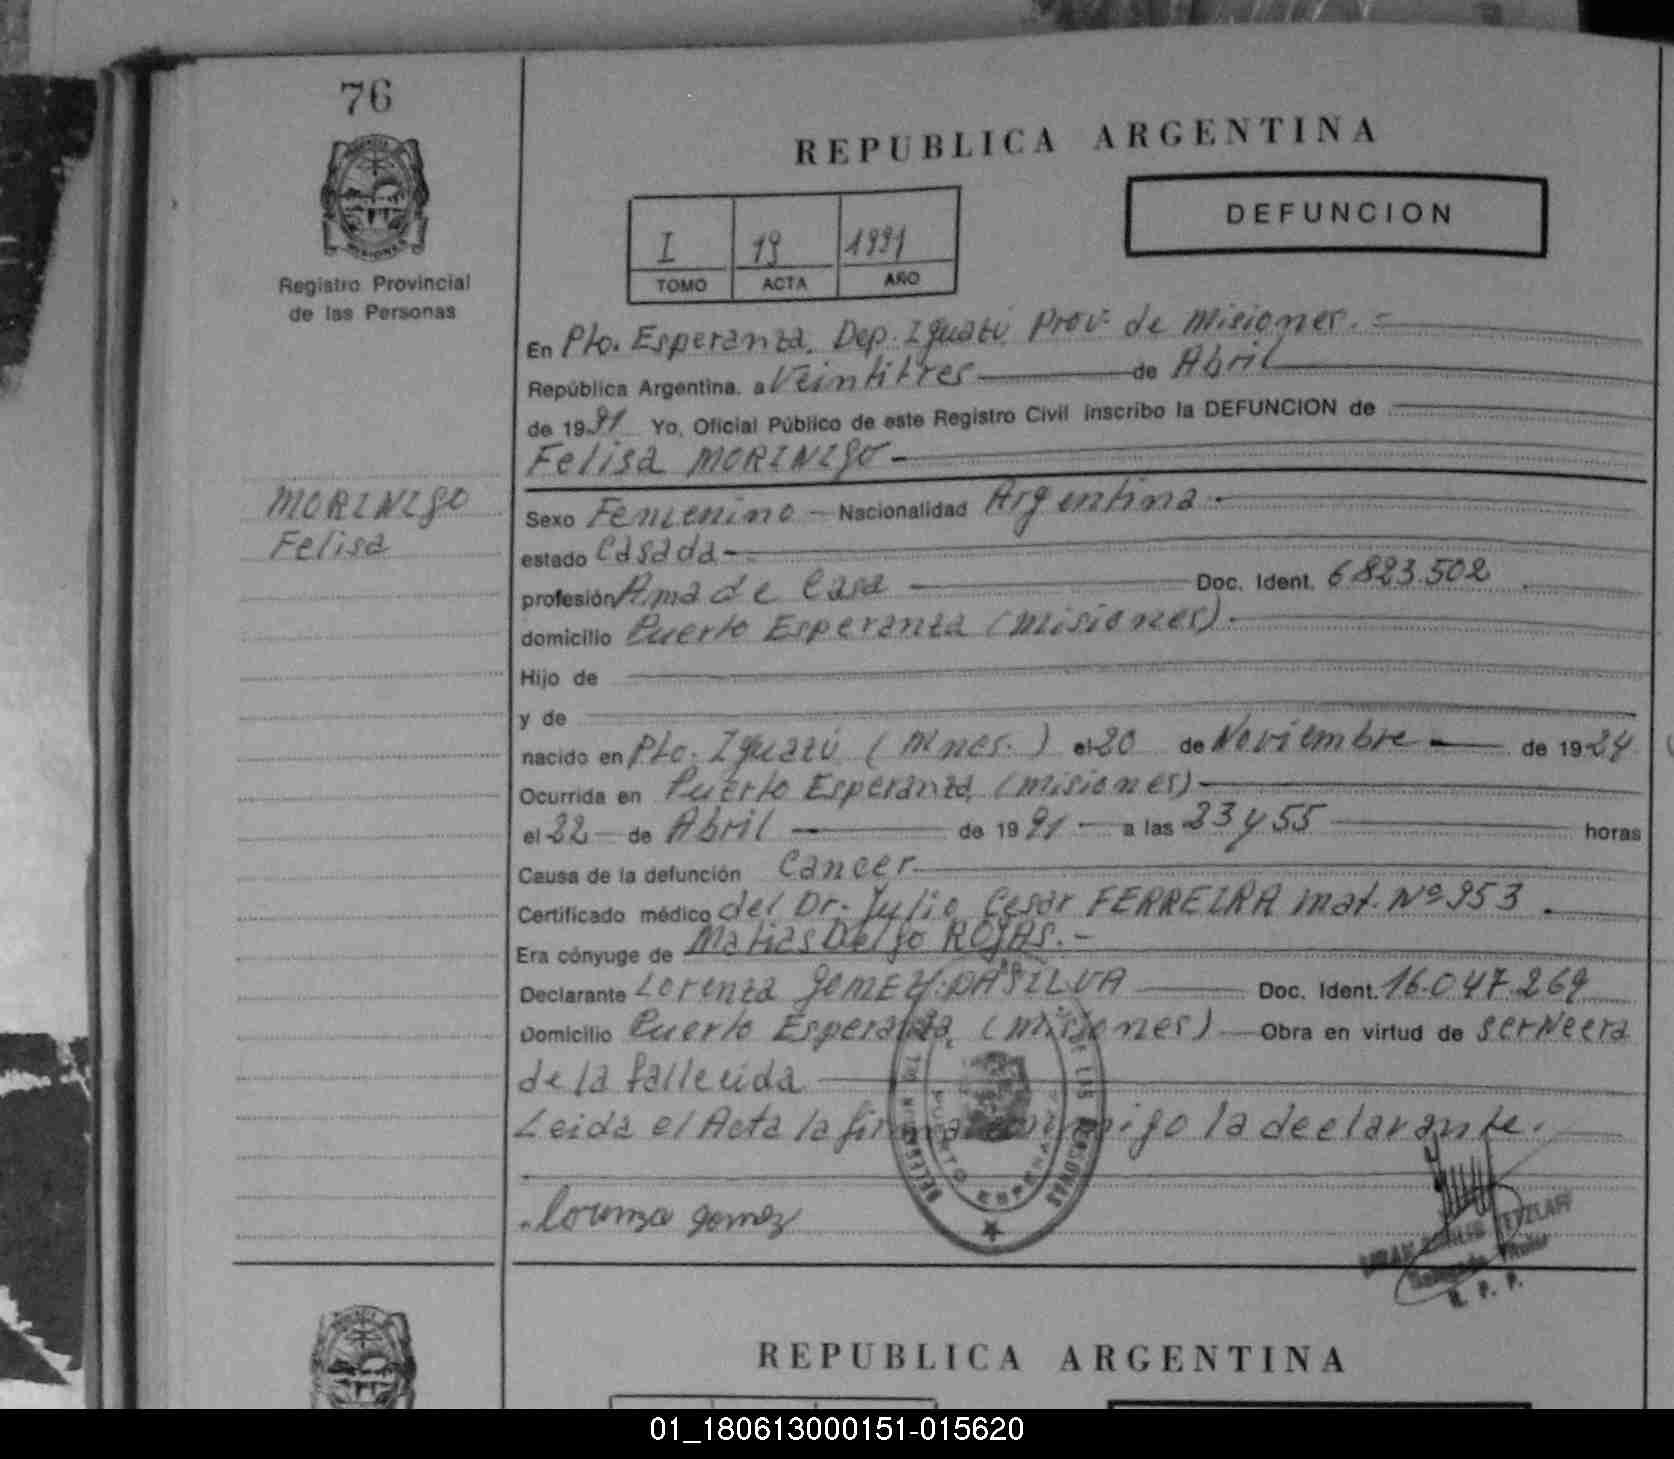 76
REPUBLICA ARGENTINA
DEFUNCION
I 19 1991
TOMO ACTA AÑO
Registro Provincial
de las Personas
En Pto. Esperanza, Dep. Iguazú Prov. de Misiones. =
República Argentina, a Veintitres de Abril
de 1991 Yo, Oficial Público de este Registro Civil inscribo la DEFUNCION de
Felisa MORINIGO
MORINIGO
Felisa
Sexo Femenino - Nacionalidad Argentina.
estado Casada-
profesión Ama de Casa Doc. Ident. 6.823.502
domicilio Puerto Esperanza (Misiones).
Hijo de
y de
nacido en Pto. Iguazú (Mnes.) el 20 de Noviembre de 1924
Ocurrida en Puerto Esperanza, (Misiones)
el 22 de Abril de 1991 a las 23 y 55 horas
Causa de la defunción Cancer
Certificado médico del Dr. Julio Cesar FERREIRA Mat. Nº 953
Era cónyuge de Matias ROJAS.-
Declarante Lorenza GOMEZ DASILVA Doc. Ident. 16.047.269
Domicilio Puerto Esperanza, (Misiones) Obra en virtud de ser
de la fallecida
Leida el Acta la firma conmigo la declarante.
DE LAS PERSONAS
PUERTO ESPERANZA
Lorenza gomez
TETZLAFF
R. P. P.
REPUBLICA ARGENTINA
01_180613000151-015620